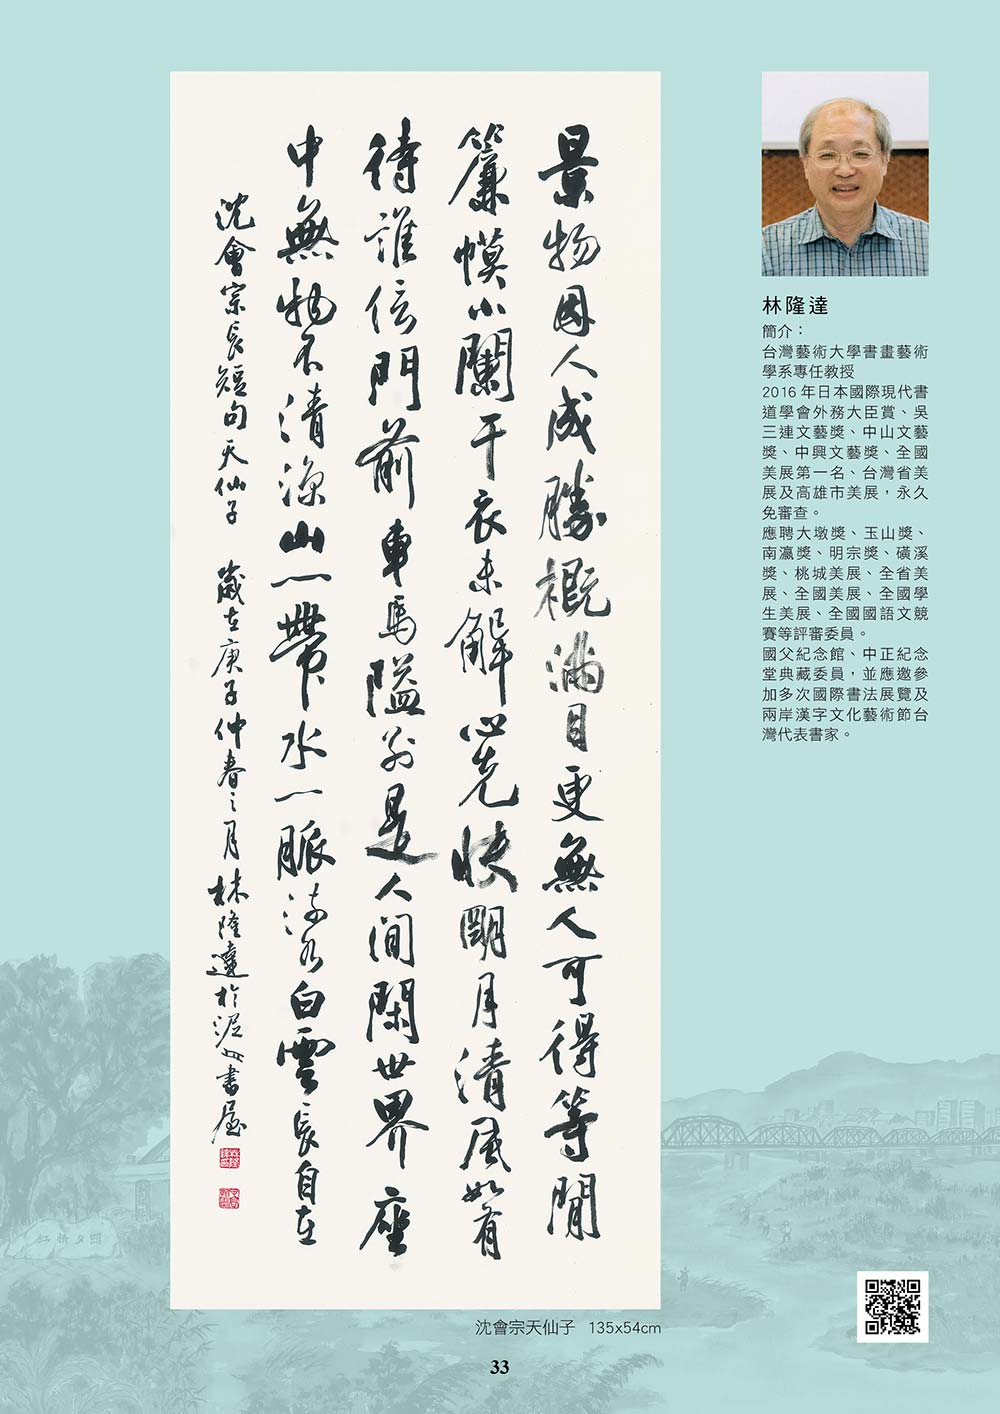 景物因人成勝概滿目更無人可得等閒
簾幙小闌干衣未解心先快明月清風如有
待誰信門前車馬隘別是人間閑世界座
中無物不清涼山一帶水一脈流水白雲長自在
沈會宗長短句天仙子 歲在庚子仲春之月林隆達於書屋
林隆達
簡介：
台灣藝術大學書畫藝術
學系專任教授
2016年日本國際現代書
道學會外務大臣賞、吳
三連文藝獎、中山文藝
獎、中興文藝獎、全國
美展第一名、台灣省美
展及高雄市美展，永久
免審查。
應聘大墩獎、玉山獎、
南瀛獎、明宗獎、磺溪
獎、桃城美展、全省美
展、全國美展、全國學
生美展、全國國語文競
賽等評審委員。
國父紀念館、中正紀念
堂典藏委員，並應邀參
加多次國際書法展覽及
兩岸漢字文化藝術節台
灣代表書家。
沈會宗天仙子 135x54cm
33